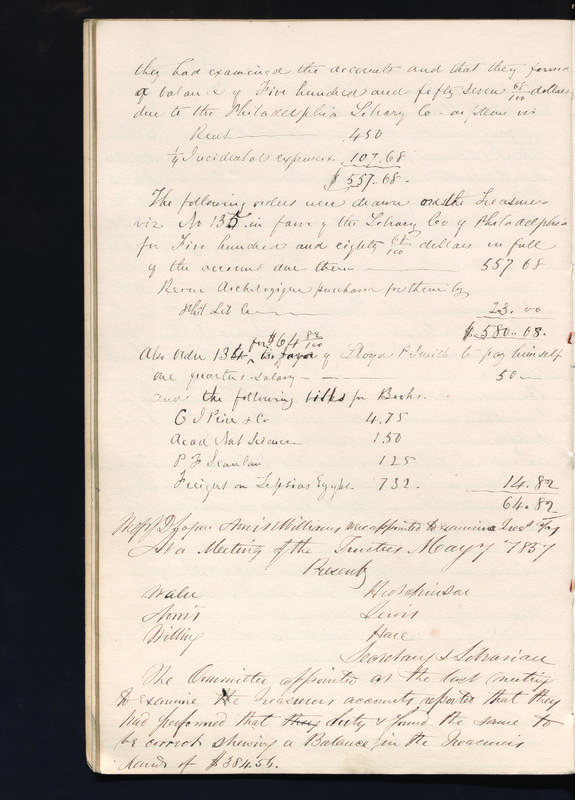 they had examined the accounts and that they found
a balance of Five hundred and fifty seven 68/100 dollars
due to the Philadelphia Library Co - as follows viz
Rent 450
1/4 Incidental expenses 107.68
$557.68.
The following orders were drawn on the Treasurer
viz. No 135 in favor of the Library Co of Philadelphia
for Five hundred and eighty 68/100 dollars in full
of the account due them 557 68
Revue Archeologique purchased for them by
Phil Lib Co 23.00
$580.68.
for $64 82/100
Also Order 134 in favor of Lloyd P. Smith to pay himself
one quarters salary 50
and the following bills for Books.
C J Price & Co 4.75
Acad Nat Science 1.50
P F Scanlan 125
Freight on Lepsius Egypt. 732. 14.82
64.82
Messrs Norris & Williams were appointed to examine
At a Meeting of the Trustees May 7 1857
Present
Waln Hutchinson
Norris Lewis
Willing Hare
Secretary & Librarian
The Committee appointed at the last meeting
to examine the Treasurers accounts reported that they
had performed that duty & found the same to
be correct shewing a Balance in the Treasurers
Hands of $384.56.